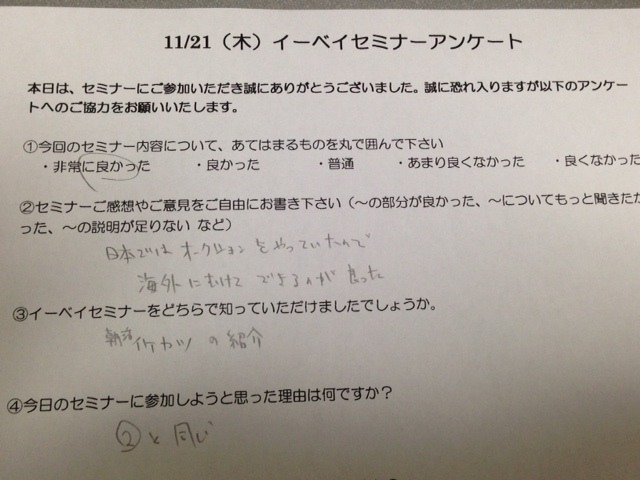 11/21（木）イーベイセミナーアンケート
本日は、セミナーにご参加いただき誠にありがとうございました。誠に恐れ入りますが以下のアンケー
トへのご協力をお願いいたします。
①今回のセミナー内容について、あてはまるものを丸で囲んで下さい
・非常に良かった　・良かった　・普通　・あまり良くなかった　・良くなかった
②セミナーご感想やご意見をご自由にお書き下さい（～の部分が良かった、～についてもっと聞きたか
った、～の説明が足りない など）
日本では オークションをやっていたので
海外にむけて できるのが 良った
③イーベイセミナーをどちらで知っていただけましたでしょうか。
イケカツ の 紹介
④今日のセミナーに参加しようと思った理由は何ですか？
② と 同じ